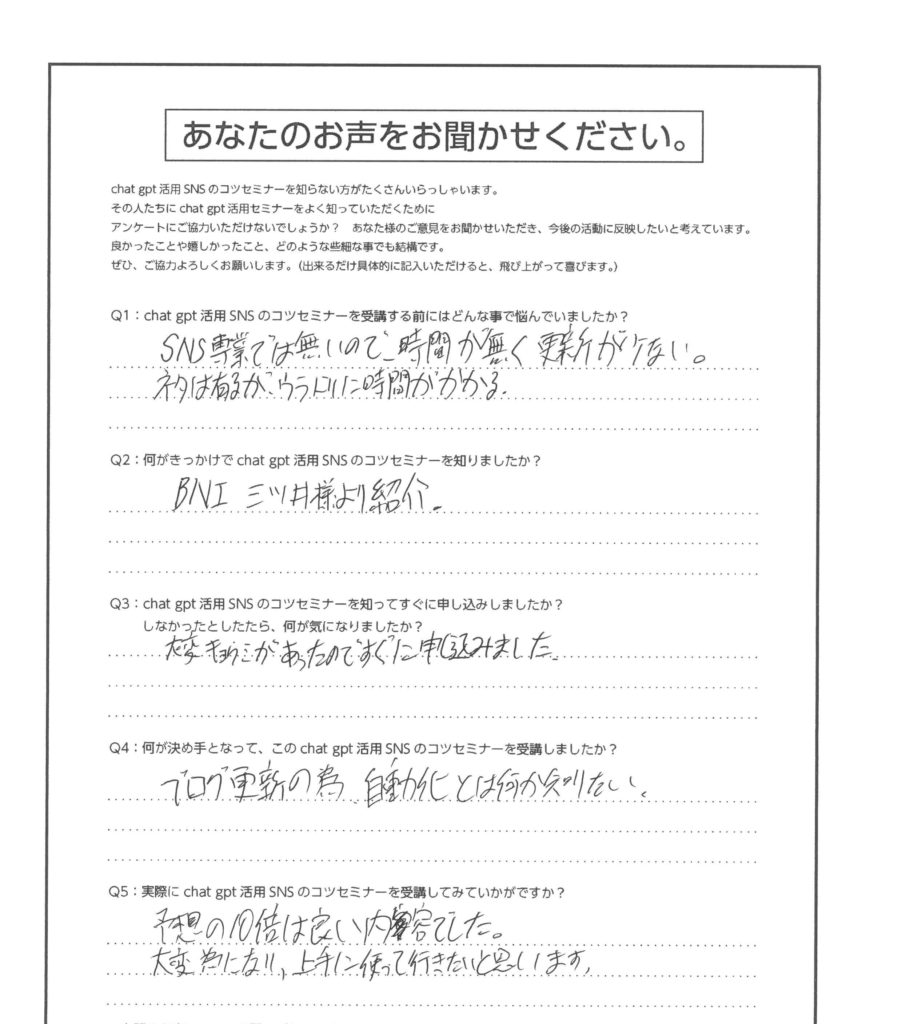 あなたのお声をお聞かせください。
chat gpt 活用 SNS のコツセミナーを知らない方がたくさんいらっしゃいます。
その人たちに chat gpt 活用セミナーをよく知っていただくために
アンケートにご協力いただけないでしょうか？　あなた様のご意見をお聞かせいただき、今後の活動に反映したいと考えています。
良かったことや嬉しかったこと、どのような些細な事でも結構です。
ぜひ、ご協力よろしくお願いします。（出来るだけ具体的に記入いただけると、飛び上がって喜びます。）
Q1：chat gpt 活用 SNS のコツセミナーを受講する前にはどんな事で悩んでいましたか？
SNS専業では無いので、時間が無く更新が行ない。
ネタは有るが、ウラドリに時間がかかる。
Q2：何がきっかけで chat gpt 活用 SNS のコツセミナーを知りましたか？
BNI 三ツ井様より紹介。
Q3：chat gpt 活用 SNS のコツセミナーを知ってすぐに申し込みしましたか？
しなかったとしたたら、何が気になりましたか？
大変キョウミがあったのですぐに申し込みました。
Q4：何が決め手となって、この chat gpt 活用 SNS のコツセミナーを受講しましたか？
ブログ更新の為、自動化とは何か知りたい。
Q5：実際に chat gpt 活用 SNS のコツセミナーを受講してみていかがですか？
予想の10倍は良い内容でした。
大変為になり、上手に使って行きたいと思います。